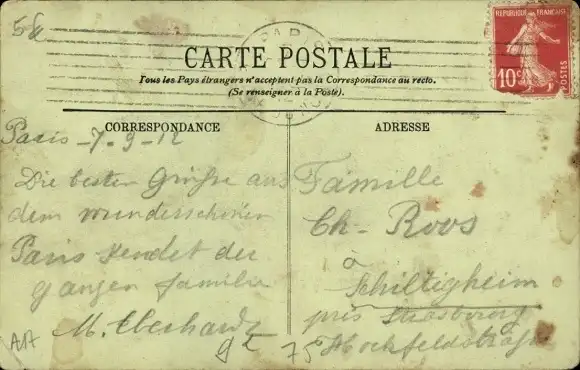 54
CARTE POSTALE
Tous les Pays étrangers n'acceptent pas la Correspondance au recto.
(Se renseigner à la Poste).
REPUBLIQUE FRANÇAISE
10c
POSTES
PARIS
CORRESPONDANCE
Paris - 7. 9 - 12
Die besten Grüße aus
dem wunderschönen
Paris sendet der
ganzen Familie
M. Eberhardt
A17
92
ADRESSE
Famille
Ch. Roos
à
Schiltigheim
près Strasbourg
75 Hochfeldstraße